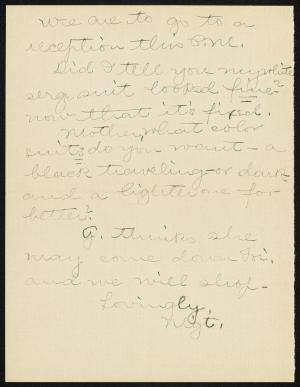 We are to go to a
reception this P.M.
Did I tell you my white
serge suit looked fine?
now that it's fixed.
Mother, what color
suits do you want - a
black traveling or dark
and a lighter one for
better?
G. thinks she
may come down Fri.
and we will shop -
Lovingly
Mgt.